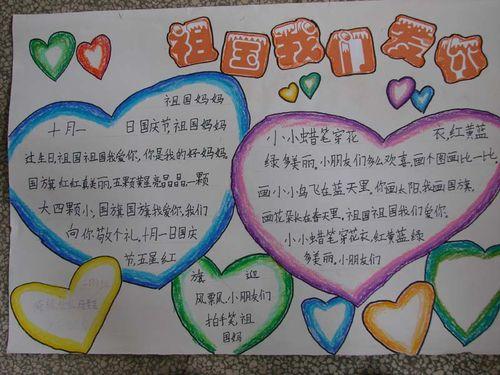 祖国我们爱你
祖国妈妈
十月一 日国庆节祖国妈妈
过生日祖国祖国我爱你,你是我的好妈妈。
国旗红红真美丽,五颗黄星亮晶晶,一颗
大四颗小,国旗国旗我爱你,我们
向你敬个礼。十月一日国庆
节五星红
旗 迎
风飘飘,小朋友们
拍手笑祖
国妈
小小蜡笔穿花 衣,红黄蓝
绿多美丽。小朋友们多么欢喜,画个图画比一比
画小小鸟飞在蓝天里,你画太阳,我画国旗,
画花朵长在春天里。祖国祖国我们爱你。
小小蜡笔穿花衣,红黄蓝绿
多美丽,小朋友们